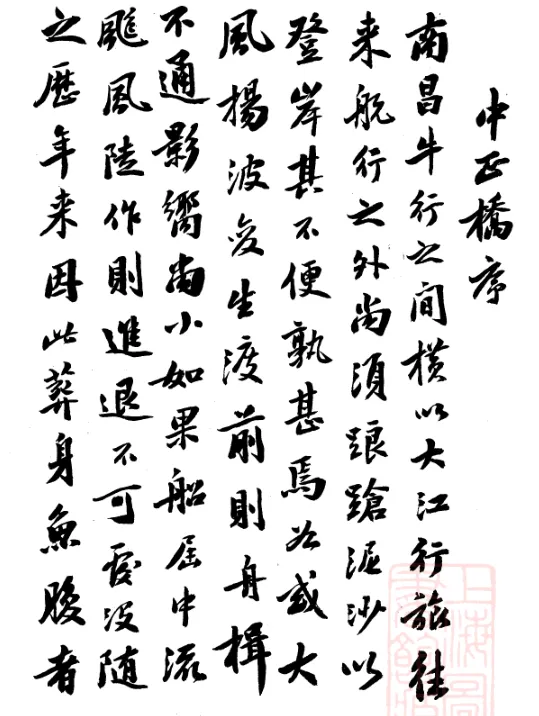 中正橋序
南昌牛行之间橫以大江行旅往
来航行之外尚須踉蹌泥沙以
登岸其不便孰甚焉若或大
風揚波變生渡前則舟楫
不通影響尚小如果船届中流
颶風陡作則進退不可覆没随
之歷年来因此葬身魚腹者
上海圖
書館藏